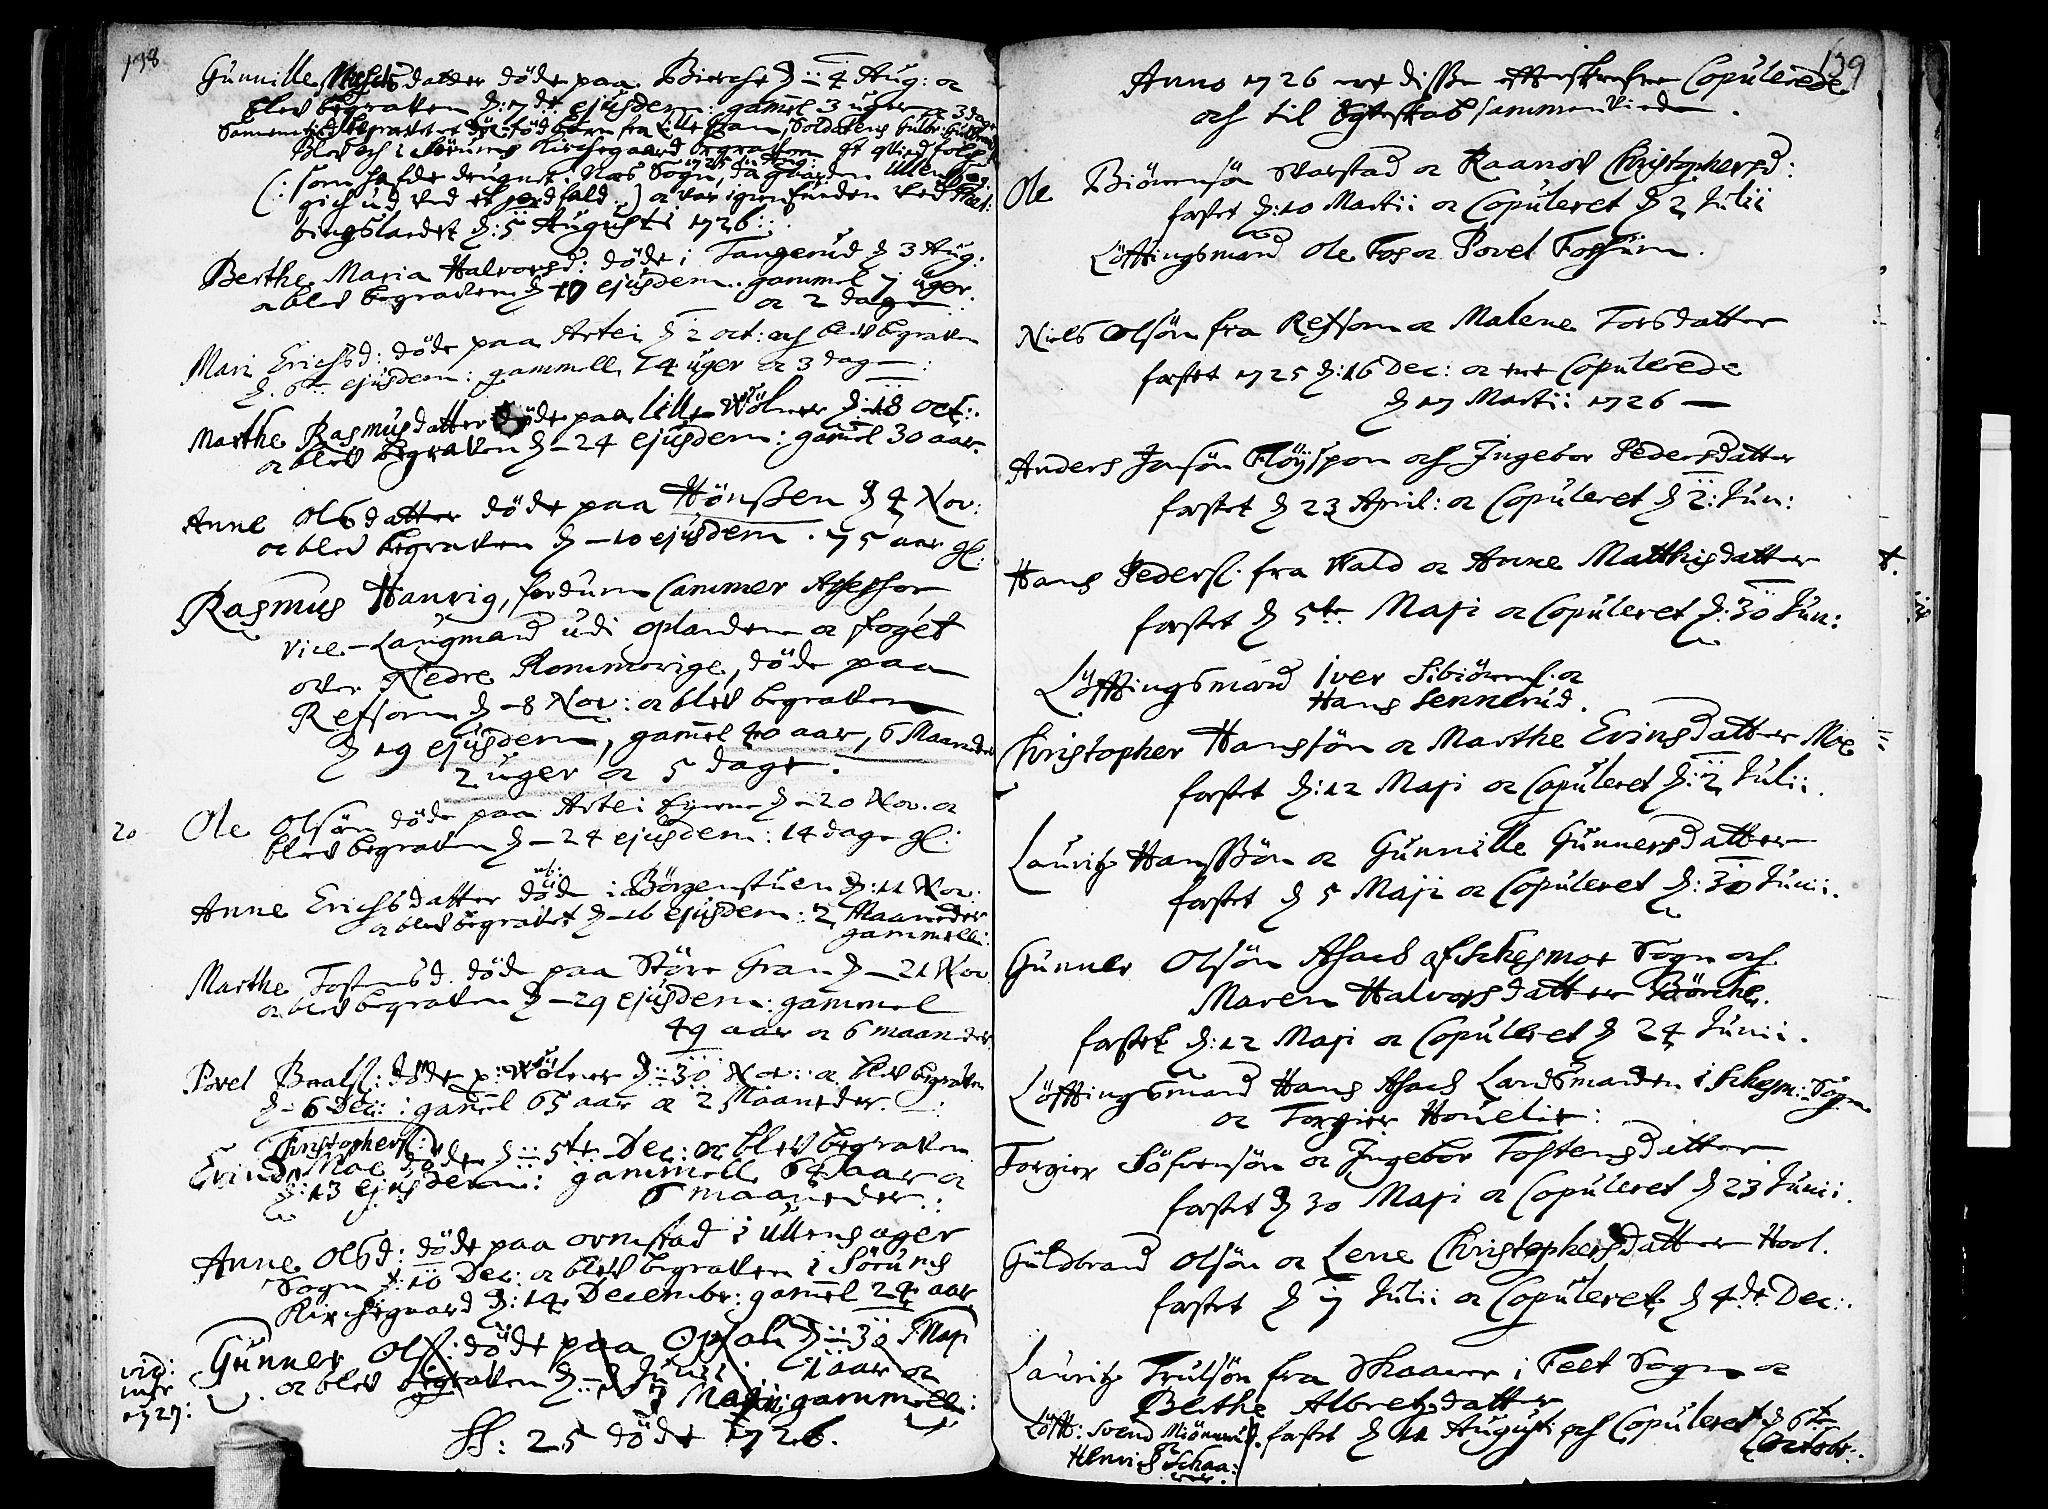 138
Gunnille datter døde paa Bierche d: 4 Aug: oc
blev begraven d: 7de ejusdem: gamel 3 uger oc 3 dage
Blev och i Sørums Kirchegaard begraven et qvindfolch
(: som hafde Næs Sogn, da gaarden Ullen
gich ud ved et jordfald :) oc var igienfunden ved
bingslandet d: 5 Augusti 1726:
Berthe Maria Halvorsd: døde i Tangerud d 3 Aug:
oc blev begraven d 10 ejusdem. gammel 7 uger
oc 2 dage
Mari Erichsd: døde paa Artei d 2 oct: och blev begraven
d. 6te ejusdem: gammell 14 uger oc 3 dag
Marthe Rasmusdatter døde paa lille Wølner d: 18 oct:
oc blev begraven d 24 ejusdem: gamel 30 aar.
Anne Olsdatter døde paa Hønssen d 4 Nov:
oc blev begraven d 10 ejusdem. 75 aar gl:
Rasmus Hanrig, fordum Cammer Assessor
Vice-Laugmand udi oplanden oc foget
over Nedre Rommerige, døde paa
Refsom d 8 Nov: oc blev begraven
d 19 ejusdem, gamel 40 aar, 6 Maaneder
2 uger oc 5 dage.
20 Ole Olsøn døde paa Artei d 20 Nov. oc
blev begraven d 24 ejusdem: 14 dage gl:
Anne Erichsdatter døde i Børgenstuen d: 11 Nov:
oc blev begravet d 16 ejusdem: 2 Maaneder
gammell:
Marthe Tostensd. døde paa Store Fran d 21 Nov
oc blev begraven d 29 ejusdem: gammel
49 aar oc 6 maaneder
Povel døde p: Wølner d: 30 Nov: oc blev begraven
d 6 Dec: gamel 65 aar oc 2 Maaneder.
Christophers:
Erind Moe døde d: 5te Dec: oc blev begraven
d: 13 ejusdem: gammell 64 aar oc
6 maaneder:
Anne Olsd: døde paa ormstad i Ullensager
Sogn d: 10 Dec: oc blev begraven i Sørums
Kirchegaard d: 14 Decembr: gamel 24 aar
vid: Gunner Ols: døde paa Opsal d: 30 Maji
oc blev begraven d Junii. 1 aar oc
1727: Maji: gammell:
S: 25 døde 1726.
139
Anno 1726 ere disse efterskrefne Copulerede
och til Egteskab sammenviede.
Ole Biørnsøn Varstad oc Raanov Christophersd:
festet d: 10 Martii oc Copuleret d 2 Julii
Løftingsmænd Ole Fos oc Povel Fossum.
Niels Olsøn fra Refsom oc Malene Torsdatter
festet 1725 d: 16 Dec: oc ere Copulerede
d 17 Martii 1726
Anders Jonsøn Fløyspon och Ingebor Pedersdatter
festet d 23 April: oc Copuleret d 2: Jun:
Hans Peders: fra Vald oc Anne Matthisdatter
festet d 5te Maji oc Copuleret d: 30 Jun:
Løftingsmænd Iver Sibiørns: oc
Hans Sennerud.
Christopher Hansøn oc Marthe Erinsdatter Moe
festet d: 12 Maji oc Copuleret d: 2 Julii.
Lauritz Hanssøn oc Gunnille Gunnersdatter
festet d 5 Maji oc Copuleret d: 30 Junii.
Gunner Olsøn Asach af Schesmoe Sogn och
Maren Halvorsdatter Børche.
festet d: 12 Maji oc Copulleret d 24 Junii.
Løftingsmænd Hans Asach Landsmanden i Schesm: Sogn
oc Torgier Houelie:
Torgier Søfrensøn oc Ingebor Tostensdatter
festet d 30 Maji oc Copuleret d 23 Junii.
Guldbrand Olsøn oc Lene Christophersdatter Hvol.
festet d 7 Julii oc Copuleret d 4de Dec:
Lauritz Trulsøn fra Skaarer i Feet Sogn oc
Blethe Albretzdatter
Løft: Svend festet d 11 Augusti och Copuleret d 6te
Henrich Schaa: Octobr:
rer.